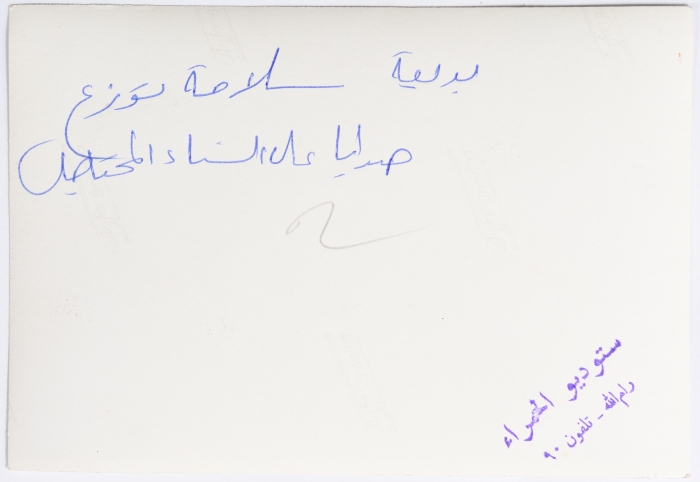 بديعة سلامة توزع
هدايا على النساء المحتاجين
ستوديو الحمراء
رام الله - تلفون ٩٠